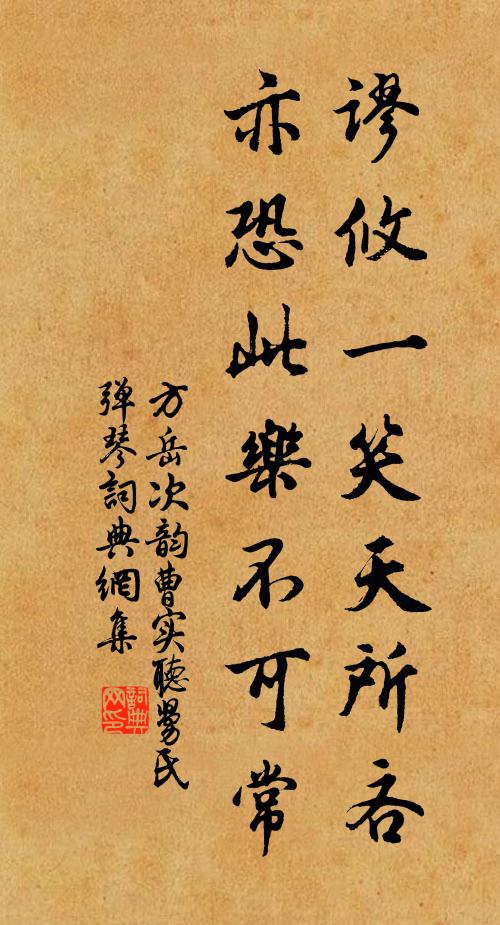 谬攸一笑天所吝
亦恐此樂不可常
方岳次韵曹实聽民
弹琴詞典網集
詞典网印